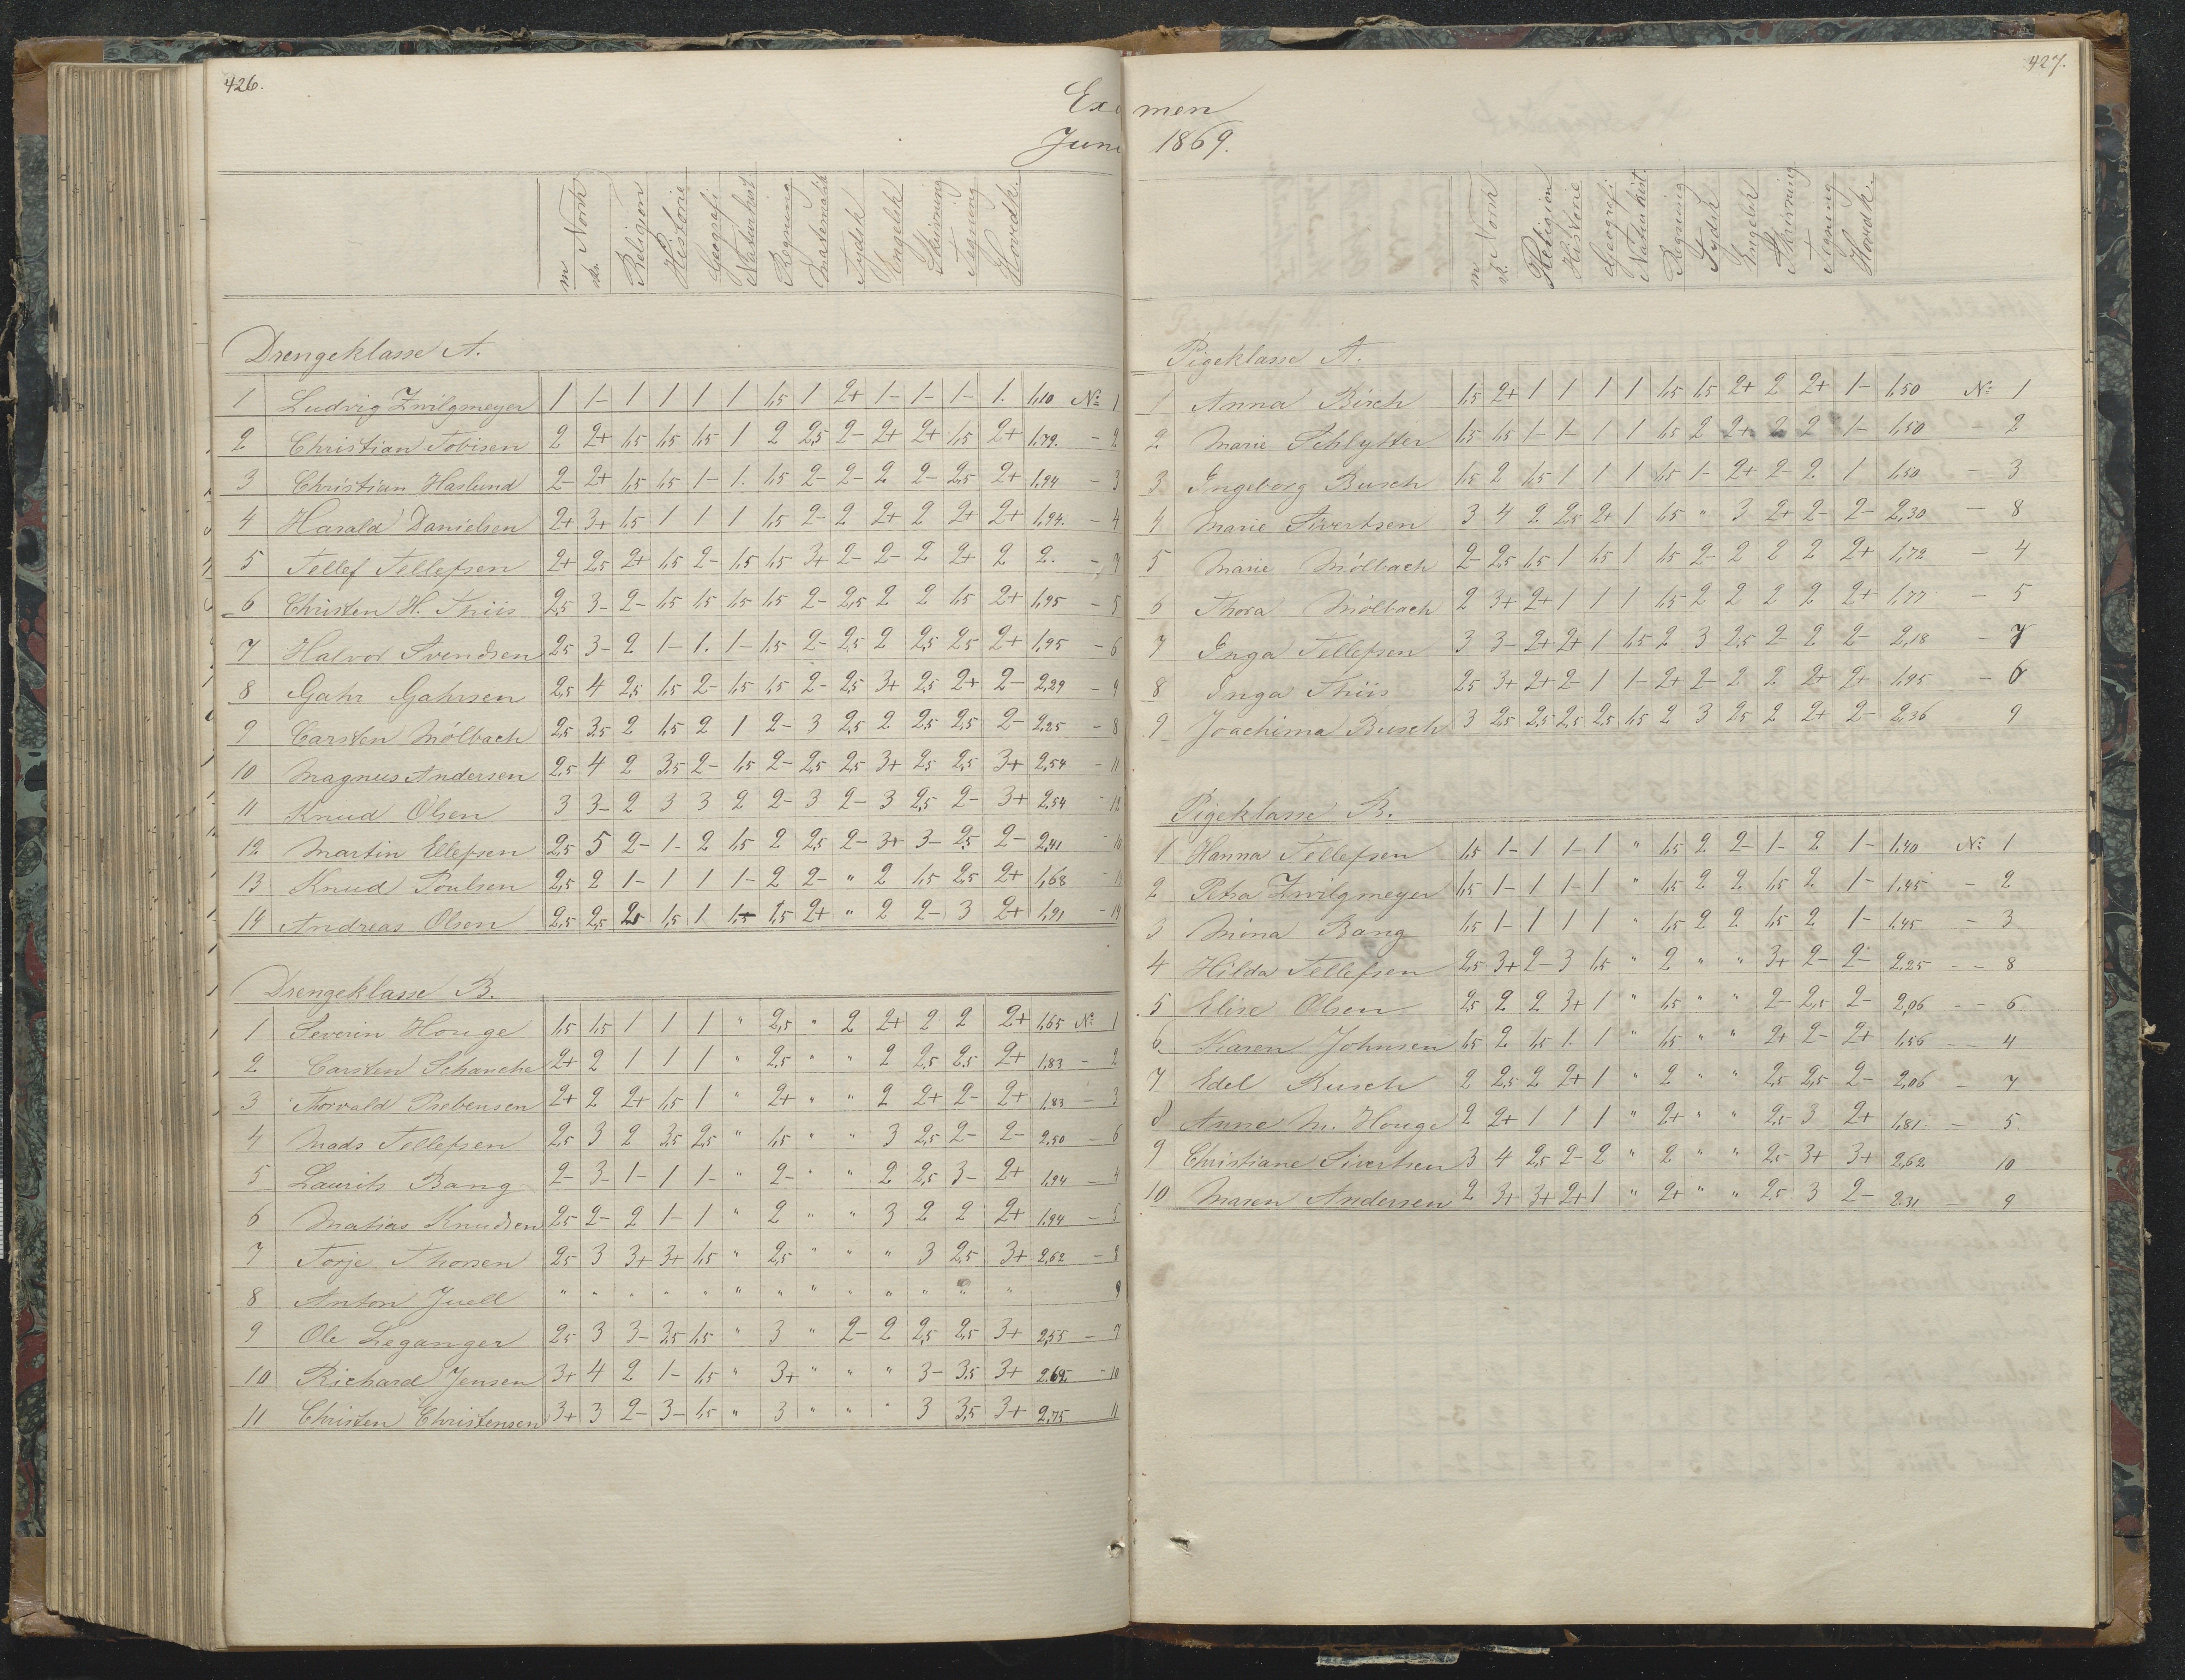 426.
Exa
Juni
m. Norsk
sk.
Religion
Historie
Geografi
Naturhist
Regning
Matematik
Tydsk
Engelsk
Skrivning
Tegning
Hovedk.
Drengeklasse A.
1 Ludvig Zwilgmeyer 1 1- 1 1 1 1 1,5 1 2+ 1- 1- 1- 1. 1,10 No 1
2 Christian Tobisen 2 2+ 1,5 1,5 1,5 1 2 2,5 2- 2+ 2+ 1,5 2+ 1,79. - 2
3 Christian Haslund 2- 2+ 1,5 1,5 1- 1. 1,5 2- 2- 2 2- 2,5 2+ 1,94 - 3
4 Harald Danielsen 2+ 3+ 1,5 1 1 1 1,5 2- 2 2+ 2 2+ 2+ 1,94. - 4
5 Tellef Tellefsen 2+ 2,5 2+ 1,5 2- 1,5 1,5 3+ 2- 2- 2 2+ 2 2. - 7
6 Christen H. Thiis 2,5 3- 2- 1,5 1,5 1,5 1,5 2- 2,5 2 2 1,5 2+ 1,95 - 5
7 Halvor Svendsen 2,5 3- 2 1- 1. 1- 1,5 2- 2,5 2 2,5 2,5 2+ 1,95 - 6
8 Gahr Gahrsen 2,5 4 2,5 1,5 2- 1,5 1,5 2- 2,5 3+ 2,5 2+ 2- 2,29 - 9
9 Carsten Mölbach 2,5 3,5 2 1,5 2 1 2- 3 2,5 2 2,5 2,5 2- 2,25 - 8
10 Magnus Andersen 2,5 4 2 3,5 2- 1,5 2- 2,5 2,5 3+ 2,5 2,5 3+ 2,54 - 11
11 Knud Olsen 3 3- 2 3 3 2 2- 3 2- 3 2,5 2- 3+ 2,54 - 12
12 Martin Ellefsen 2,5 5 2- 1- 2 1,5 2 2,5 2- 3+ 3- 2,5 2- 2,41 - 10
13 Knud Poulsen 2,5 2 1- 1 1 1- 2 2- " 2 1,5 2,5 2+ 1,68 - 13
14 Andreas Olsen 2,5 2,5 2,5 1,5 1 1,5 1,5 2+ " 2 2- 3 2+ 1,91 - 14
Drengeklasse B.
1 Severin Houge 1,5 1,5 1 1 1 " 2,5 " 2 2+ 2 2 2+ 1,65 No 1
2 Carsten Schanche 2+ 2 1 1 1 " 2,5 " " 2 2,5 2,5 2+ 1,83 - 2
3 Thorvald Prebensen 2+ 2 2+ 1,5 1 " 2+ " " 2 2+ 2- 2+ 1,83 - 3
4 Mads Tellefsen 2,5 3 2 3,5 2,5 " 1,5 " " 3 2,5 2- 2- 2,50 - 6
5 Laurits Bang 2- 3- 1- 1 1- " 2- " " 2 2,5 3- 2+ 1,94 - 4
6 Matias Knudsen 2,5 2- 2 1- 1 " 2 " " 3 2 2 2+ 1,94 - 5
7 Torje Thorsen 2,5 3 3+ 3+ 1,5 " 2,5 " " " 3 2,5 3+ 2,62 - 8
8 Anton Juell " " " " " " " " " " " " " 9
9 Ole Leganger 2,5 3 3- 3,5 1,5 " 3 " 2- 2 2,5 2,5 3+ 2,55 - 7
10 Richard Jensen 3+ 4 2 1- 1,5 " 3+ " " " 3- 3,5 3+ 2,62. - 10
11 Christen Christensen 3+ 3 2- 3- 1,5 " 3 " " " 3 3,5 3+ 2,75 11
427.
men
1869.
m. Norsk
sk.
Religion
Historie
Geografi
Naturhist.
Regning
Tydsk
Engelsk
Skrivning
Tegning
Hovedk.
Pigeklasse A.
1 Anna Birch 1,5 2+ 1 1 1 1 1,5 1,5 2+ 2 2+ 1- 1,50 No 1
2 Marie Schlytter 1,5 1,5 1- 1- 1 1 1,5 2 2+ 2 2 1- 1,50 - 2
3 Ingeborg Busch 1,5 2 1,5 1 1 1 1,5 1- 2+ 2- 2 1 1,50 - 3
4 Marie Sivertsen 3 4 2 2,5 2+ 1 1,5 " 3 2+ 2- 2- 2,30 - 8
5 Marie Mölbach 2- 2,5 1,5 1 1,5 1 1,5 2- 2 2 2 2+ 1,72 - 4
6 Thora Mölbach 2 3+ 2+ 1 1 1 1,5 2 2 2 2 2+ 1,77 - 5
7 Inga Tellefsen 3 3- 2+ 2+ 1 1,5 2 3 2,5 2- 2 2- 2,18 - 7
8 Inga Thiis 2,5 3+ 2+ 2- 1 1- 2+ 2- 2 2 2+ 2+ 1,95 - 6
9 Joachima Busch 3 2,5 2,5 2,5 2,5 1,5 2 3 2,5 2 2+ 2- 2,36 9
Pigeklasse B.
1 Hanna Tellefsen 1,5 1- 1 1- 1 " 1,5 2 2- 1- 2 1- 1,40 No 1
2 Petra Zwilgmeyer 1,5 1- 1 1- 1 " 1,5 2 2 1,5 2 1- 1,45 - 2
3 Mina Bang 1,5 1- 1 1 1 " 1,5 2 2 1,5 2 1- 1,45 - 3
4 Hilda Tellefsen 2,5 3+ 2- 3 1,5 " 2 " " 3+ 2- 2- 2,25 - 8
5 Elise Olsen 2,5 2 2 3+ 1 " 1,5 " " 2- 2,5 2- 2,06 - 6
6 Karen Johnsen 1,5 2 1,5 1. 1 " 1,5 " " 2+ 2- 2+ 1,56 - 4
7 Edel Busch 2 2,5 2 2+ 1 " 2 " " 2,5 2,5 2- 2,06 - 7
8 Anne M. Houge 2 2+ 1 1 1 " 2+ " " 2,5 3 2+ 1,81 - 5.
9 Christiane Sivertsen 3 4 2,5 2- 2 " 2 " " 2,5 3+ 3+ 2,62 10
10 Maren Andersen 2 3+ 3+ 2+ 1 " 2+ " " 2,5 3 2- 2,31 - 9